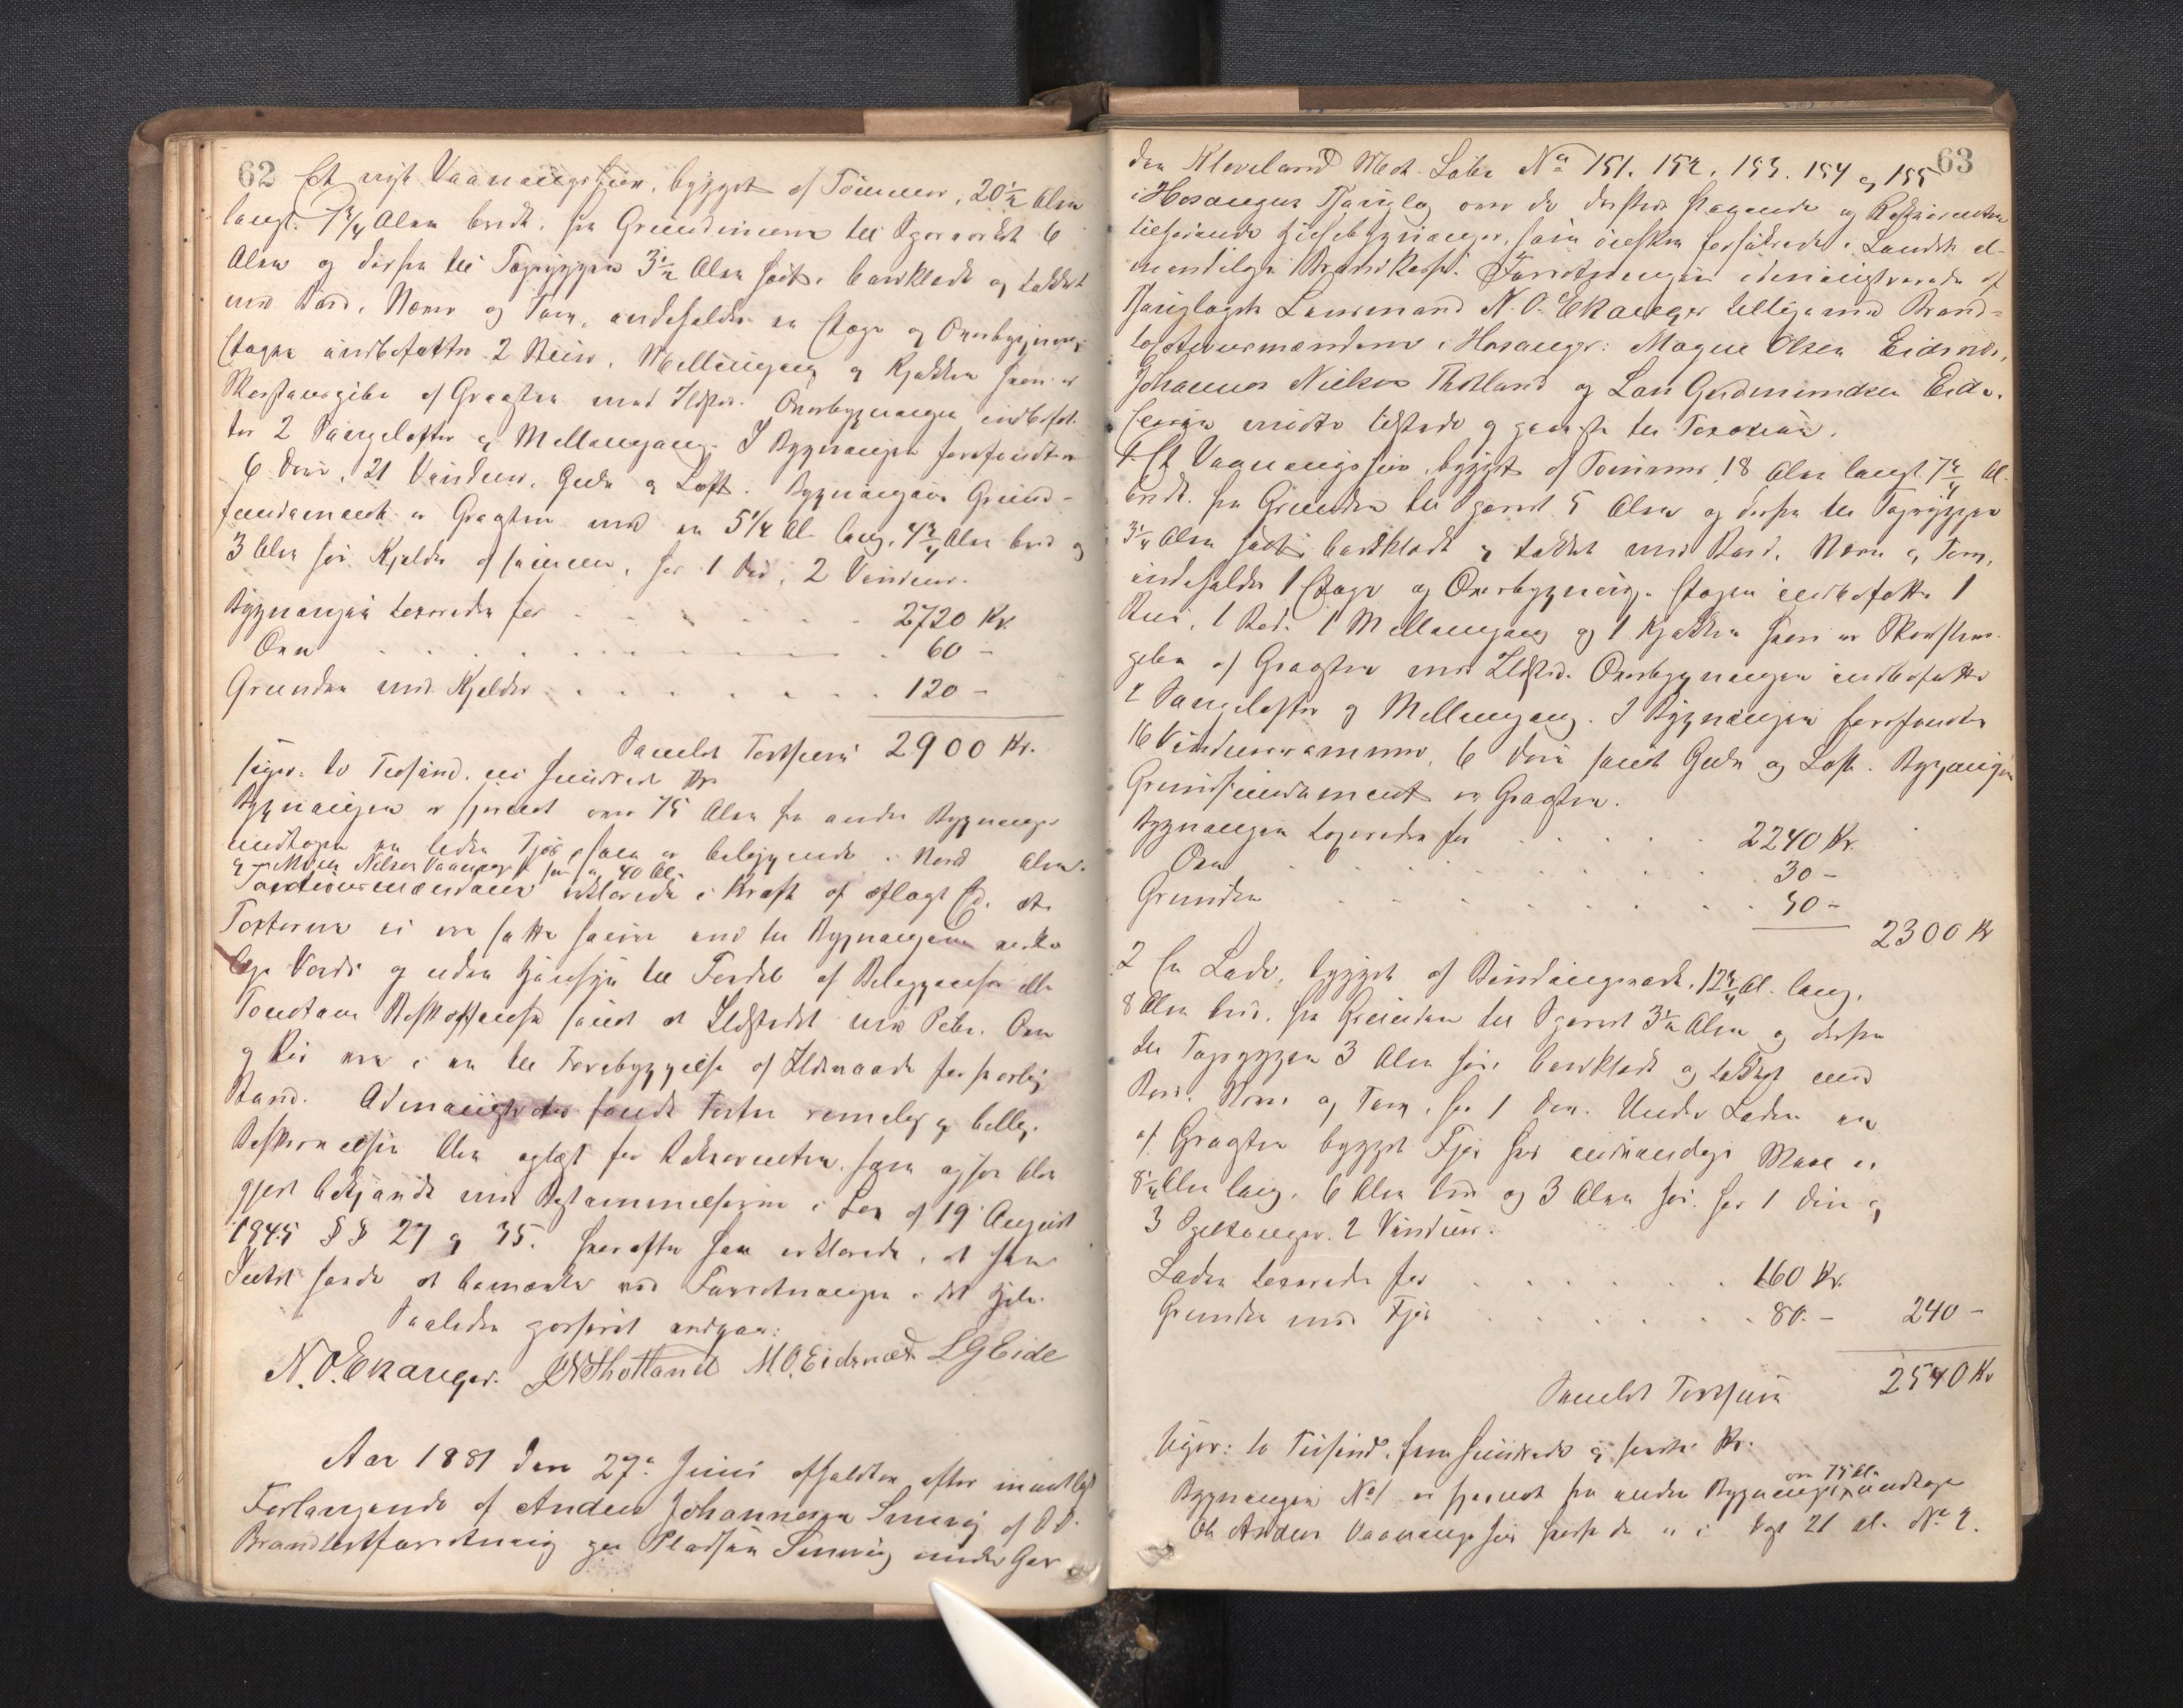 62 Et nyt Vaaningshuus, bygget af Tømmer, 20 1/2 Alen
langt. 7 3/4 Alen bredt, fra Grundmuren til Sparrerne 6
Alen og derfra til Tagryggen 3 1/2 Alen høit, bordklædt og tækket
med Bord, Næver og Torv, indeholder en Etage og Overbygning.
Etagen indbefatter 2 Stuer, Mellemgang og Kjøkken hvori er
Skorstenspibe af Graasten med Ildsted. Overbygningen indbefat-
ter 2 Sængelofter og Mellemgang. I Bygningen forefindes
6 Døre, 21 Vinduer, Gulv og Loft. Bygningens Grund-
fundament er Graasten med en 5 1/4 Al. lang, 4 3/4 Alen bred og
3 Alen høi Kjelder af samme, har 1 Dør, 2 Vinduer.
Bygningen taxeredes for 2720 Kr.
Ovn 60 -
Grunden med Kjelder 120 -
Samlet Taxtsum 2900 Kr.
siger: to Tusind, ni hundrede Kr.
Bygningen er fjernet over 75 Alen fra andre Bygninger
undtagen en liden som er beliggende i Nord Alen.
og Mons Nilsen Vaaningsh. 40 Al.
Taxtationsmændene erklærede i Kraft af aflagt Ed, at
Taxterne ei ere satte høiere end til Bygningens virke-
lige Værdi og uden Hensyn til Fordel af Beliggenhed eller
Tomtens Beskaffenhed samt at Ildstedet med Pibe, Ovn
og Rør ere i en til Forebyggelse af Ildsvaade forsvarlig
Stand. Administrator fandt Taxten rimelig og billig.
Beskrivelsen blev oplæst for Rekvirenten, som ogsaa blev
gjort bekjendt med Bestemmelserne i Lov af 19 August
1845 §§ 27 og 35. hvorefter han erklærede, at han
Intet havde at bemærke ved Forretningen i det Hele.
Saaledes passeret undgaar:
N. O. Ekanger. J N Thotland M. O. Eidsnæs. L G Eide
Aar 1881 den 27de Juni afholdtes efter mundtligt
Forlangende af Anders Johannesen Smevig af D D.
Brandtaxtforretning paa Pladsen Smevig under Gaar-
63
den Kleveland Matr. Løbe No 151. 152. 153. 154 og 155
i Hosanger Thinglag over de dersteds staaende og Rekvirenten
tilhørende Huusebygninger, som ønskes forsikrede i Landets al-
mindelige Brandkasse. Forretningen administreredes af
Thinglagets Lensmand N. O. Ekanger tilligemed Brand-
taxtationsmændene i Hosanger: Magne Olsen Eidsnæs,
Johannes Nielsen Thotland og Lars Gudmundsen Eide.
mødte tilstede og gaaes til Taxation.
1. Et Vaaningshuus, bygget af Tømmer 18 Alen langt, 7 3/4 Al.
bredt, fra Grunden til Sparret 5 Alen og derfra til Tagryggen
3 1/4 Alen høit bordklædt og tækket med Bord, Næver og Torv,
indeholder 1 Etage og Overbygning. Etagen indbefatter 1
Stue, 1 Bod, 1 Mellemgang og 1 Kjøkken hvori er Skorstens-
piben af Graasten med Ildsted. Overbygningen indbefatter
2 Sængelofter og Mellemgang. I Bygningen forefindes
16 Vinduesrammer, 6 Døre samt Gulv og Loft. Bygningens
Grundfundament er Graasten.
Bygningen taxeredes for 2240 Kr.
Ovn 30 -
Grunden 30 -
2300 Kr
2 En Lade, bygget af Bindingsværk, 12 3/4 Al. lang,
8 Alen bred, fra Grunden til Sparret 3 1/2 Alen og derfra
til Tagryggen 3 Alen høi, bordklædt og tækket med
Bord, Næver og Torv, har 1 Dør. Under Laden er
af Graasten bygget Fjøs hvis indvendige Maal er
8 1/4 Alen lang, 6 Alen bred og 3 Alen høi, har 1 Dør og
3 2 Vinduer.
Laden taxeredes for 160 Kr.
Grunden med Fjøs 80. - 240 -
Samlet Taxtsum 2540 Kr
siger: to Tusind, fem hundrede og førti Kr.
Bygningen No 1 er fjernet fra andre Bygninger over 75 Al. undtagen
Ole Anders Vaaningshus hvorfra de er i 21 al. No 2.